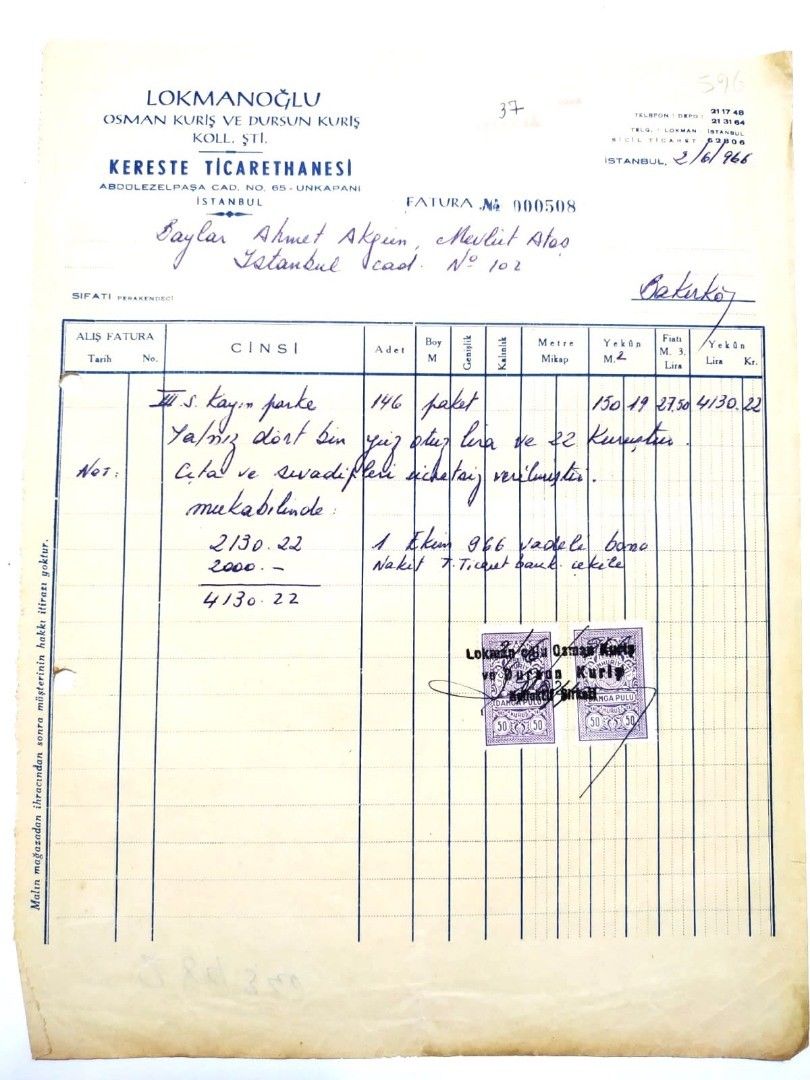 596
37
LOKMANOĞLU
OSMAN KURİŞ VE DURSUN KURİŞ
KOLL. ŞTİ.
KERESTE TİCARETHANESİ
ABDÜLEZELPAŞA CAD. NO. 65 - UNKAPANI
İSTANBUL
TELEFON : DEPO : 21 17 48
21 31 64
TELG. : LOKMAN İSTANBUL
SİCİL TİCARET 62806
İSTANBUL, 2/6/966
FATURA No 000508
Baylar Ahmet Akgün, Mevlüt Ataş
Istanbul cad. No 102
Bakırköy
SIFATI PERAKENDECİ
ALIŞ FATURA
Tarih No.
CİNSİ
Adet
Boy M
Genişlik
Kalınlık
Metre Mikap
Yekûn M.2
Fiatı M. 3. Lira
Yekûn Lira Kr.
III s. Kayın parke 146 paket 150 19 27.50 4130.22
Yalnız dört bin yüz otuz lira ve 22 Kuruştur.
Not: Çıta ve süvadipleri ücretsiz verilmiştir.
mukabilinde:
2130.22 1 Ekim 966 vadeli bono
2000.— Nakit T. Ticaret bank. çekile
4130.22
Lokman oğlu Osman Kuriş
ve Dursun Kuriş
Kollektif Şirketi
DAMGA PULU
KURUŞ
50 50
DAMGA PULU
KURUŞ
50 50
Malın mağazadan ihracından sonra müşterinin hakkı itirazı yoktur.